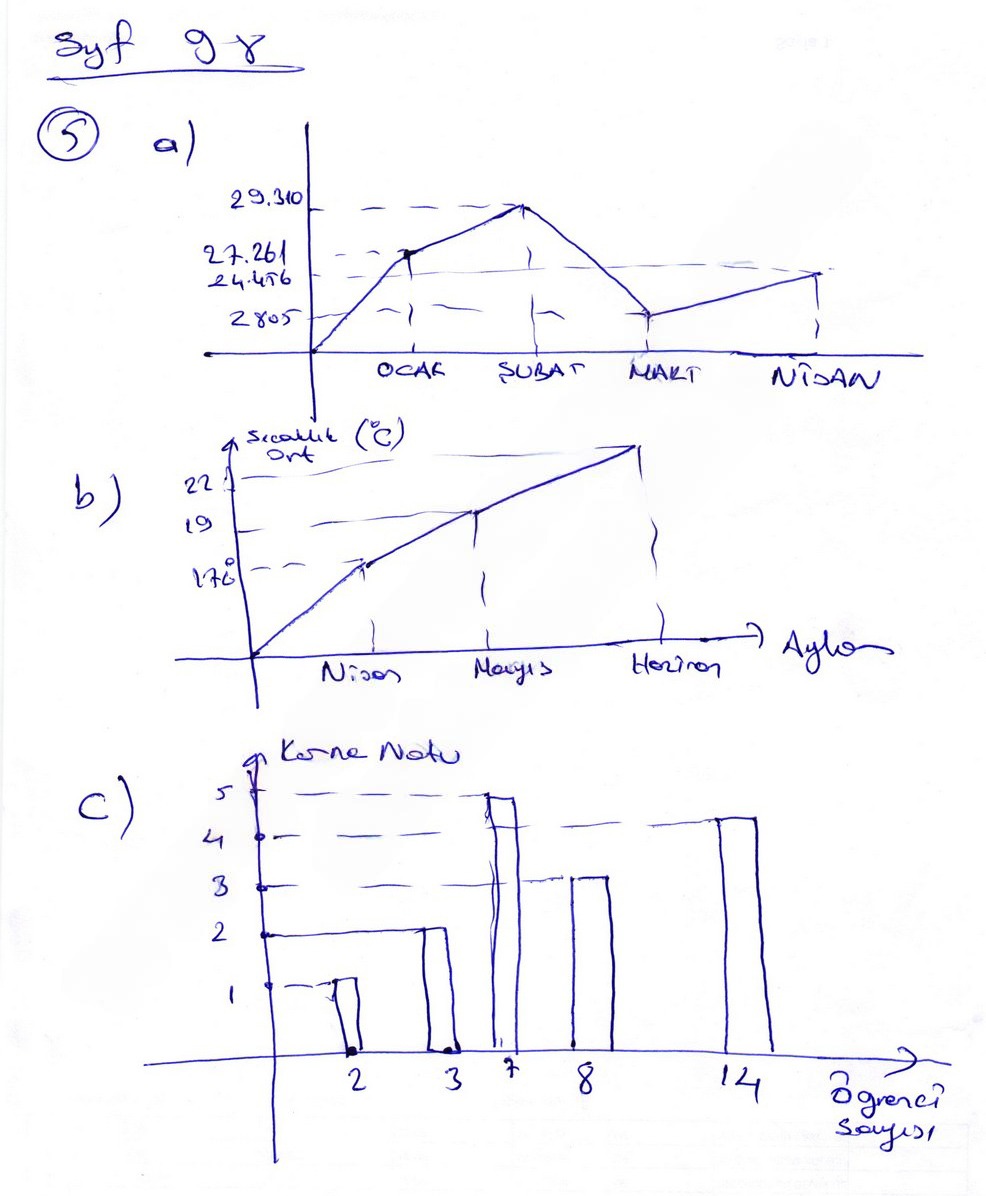 Syf 98
5 a)
29.310
27.261
24.456
2805
OCAK ŞUBAT MART NİSAN
b) Sıcaklık (°C)
Ort
22
19
Nisan Mayıs Haziran Aylar
c) Karne Notu
5
4
3
2
1
2 3 7 8 14
Öğrenci
Sayısı